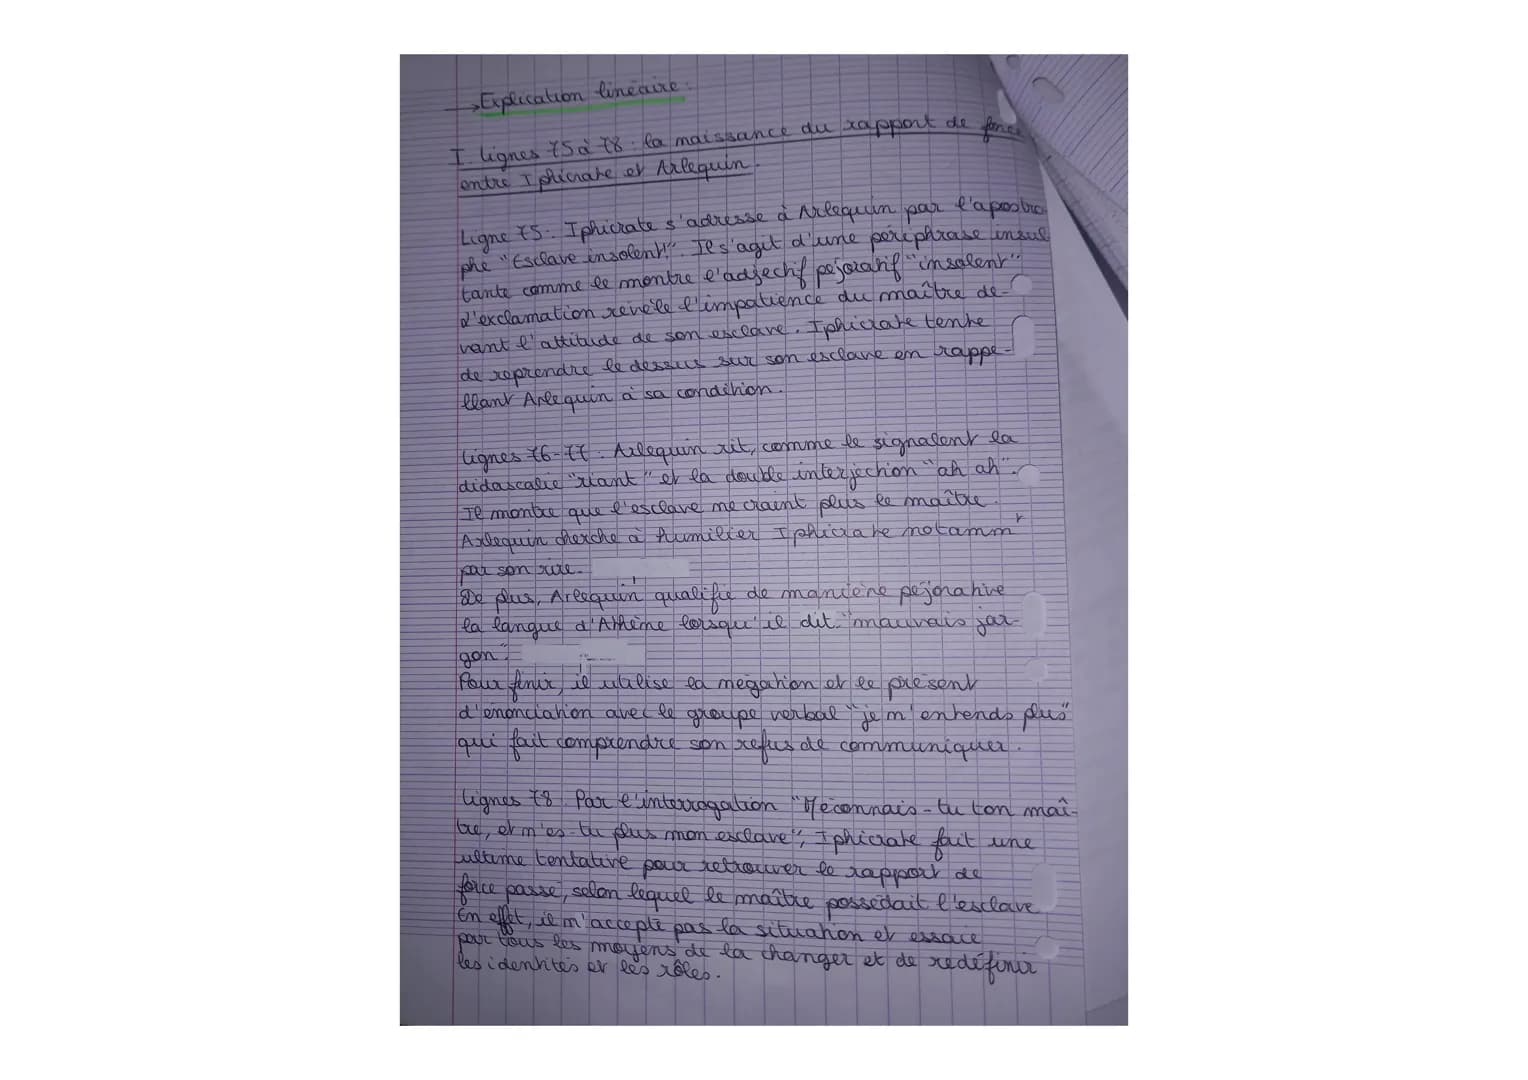 → Explication linéaire :
I. lignes 75 à 78 : la naissance du rapport de force
entre Iphicrate et Arlequin.
Ligne 75 : Iphicrate s'adresse à Arlequin par l'apostro-
phe "Esclave insolent!". Il s'agit d'une périphrase insul
tante comme le montre l'adjectif péjoratif "insolent".
L'exclamation révèle l'impatience du maître de-
vant l'attitude de son esclave. Iphicrate tente
de reprendre le dessus sur son esclave en rappe-
llant Arlequin à sa condition.
Lignes 76-77 : Arlequin rit, comme le signalent la
didascalie "riant" et la double interjection "ah ah".
Il montre que l'esclave ne craint plus le maître.
Arlequin cherche à humilier Iphicrate notammt
par son rire.
De plus, Arlequin qualifie de manière péjorative
la langue d'Athène lorsqu'il dit "mauvais jar-
gon".
Pour finir, il utilise la négation et le présent
d'énonciation avec le groupe verbal "je n'entends plus"
qui fait comprendre son refus de communiquer.
Lignes 78 : Par l'interrogation "Méconnais-tu ton maî-
tre, et n'es-tu plus mon esclave", Iphicrate fait une
ultime tentative pour retrouver le rapport de
force passé, selon lequel le maître possédait l'esclave
En effet, il n'accepte pas la situation et essaie
par tous les moyens de la changer et de redéfinir
les identités et les rôles.